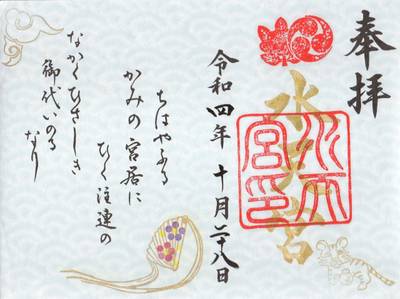 奉拝
水天宮
水天宮印
令和四年 十月二十八日
ちはやふる
かみの宮居に
ひく注連の
なかくひさしき
御代いのる
なり